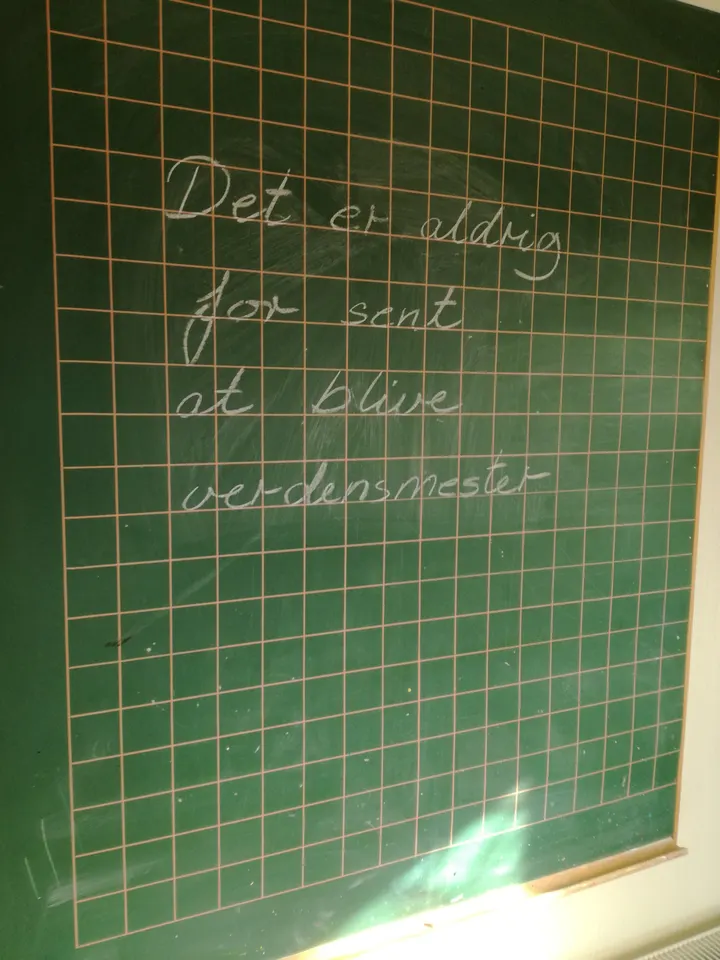 Det er aldrig
for sent
at blive
verdensmester